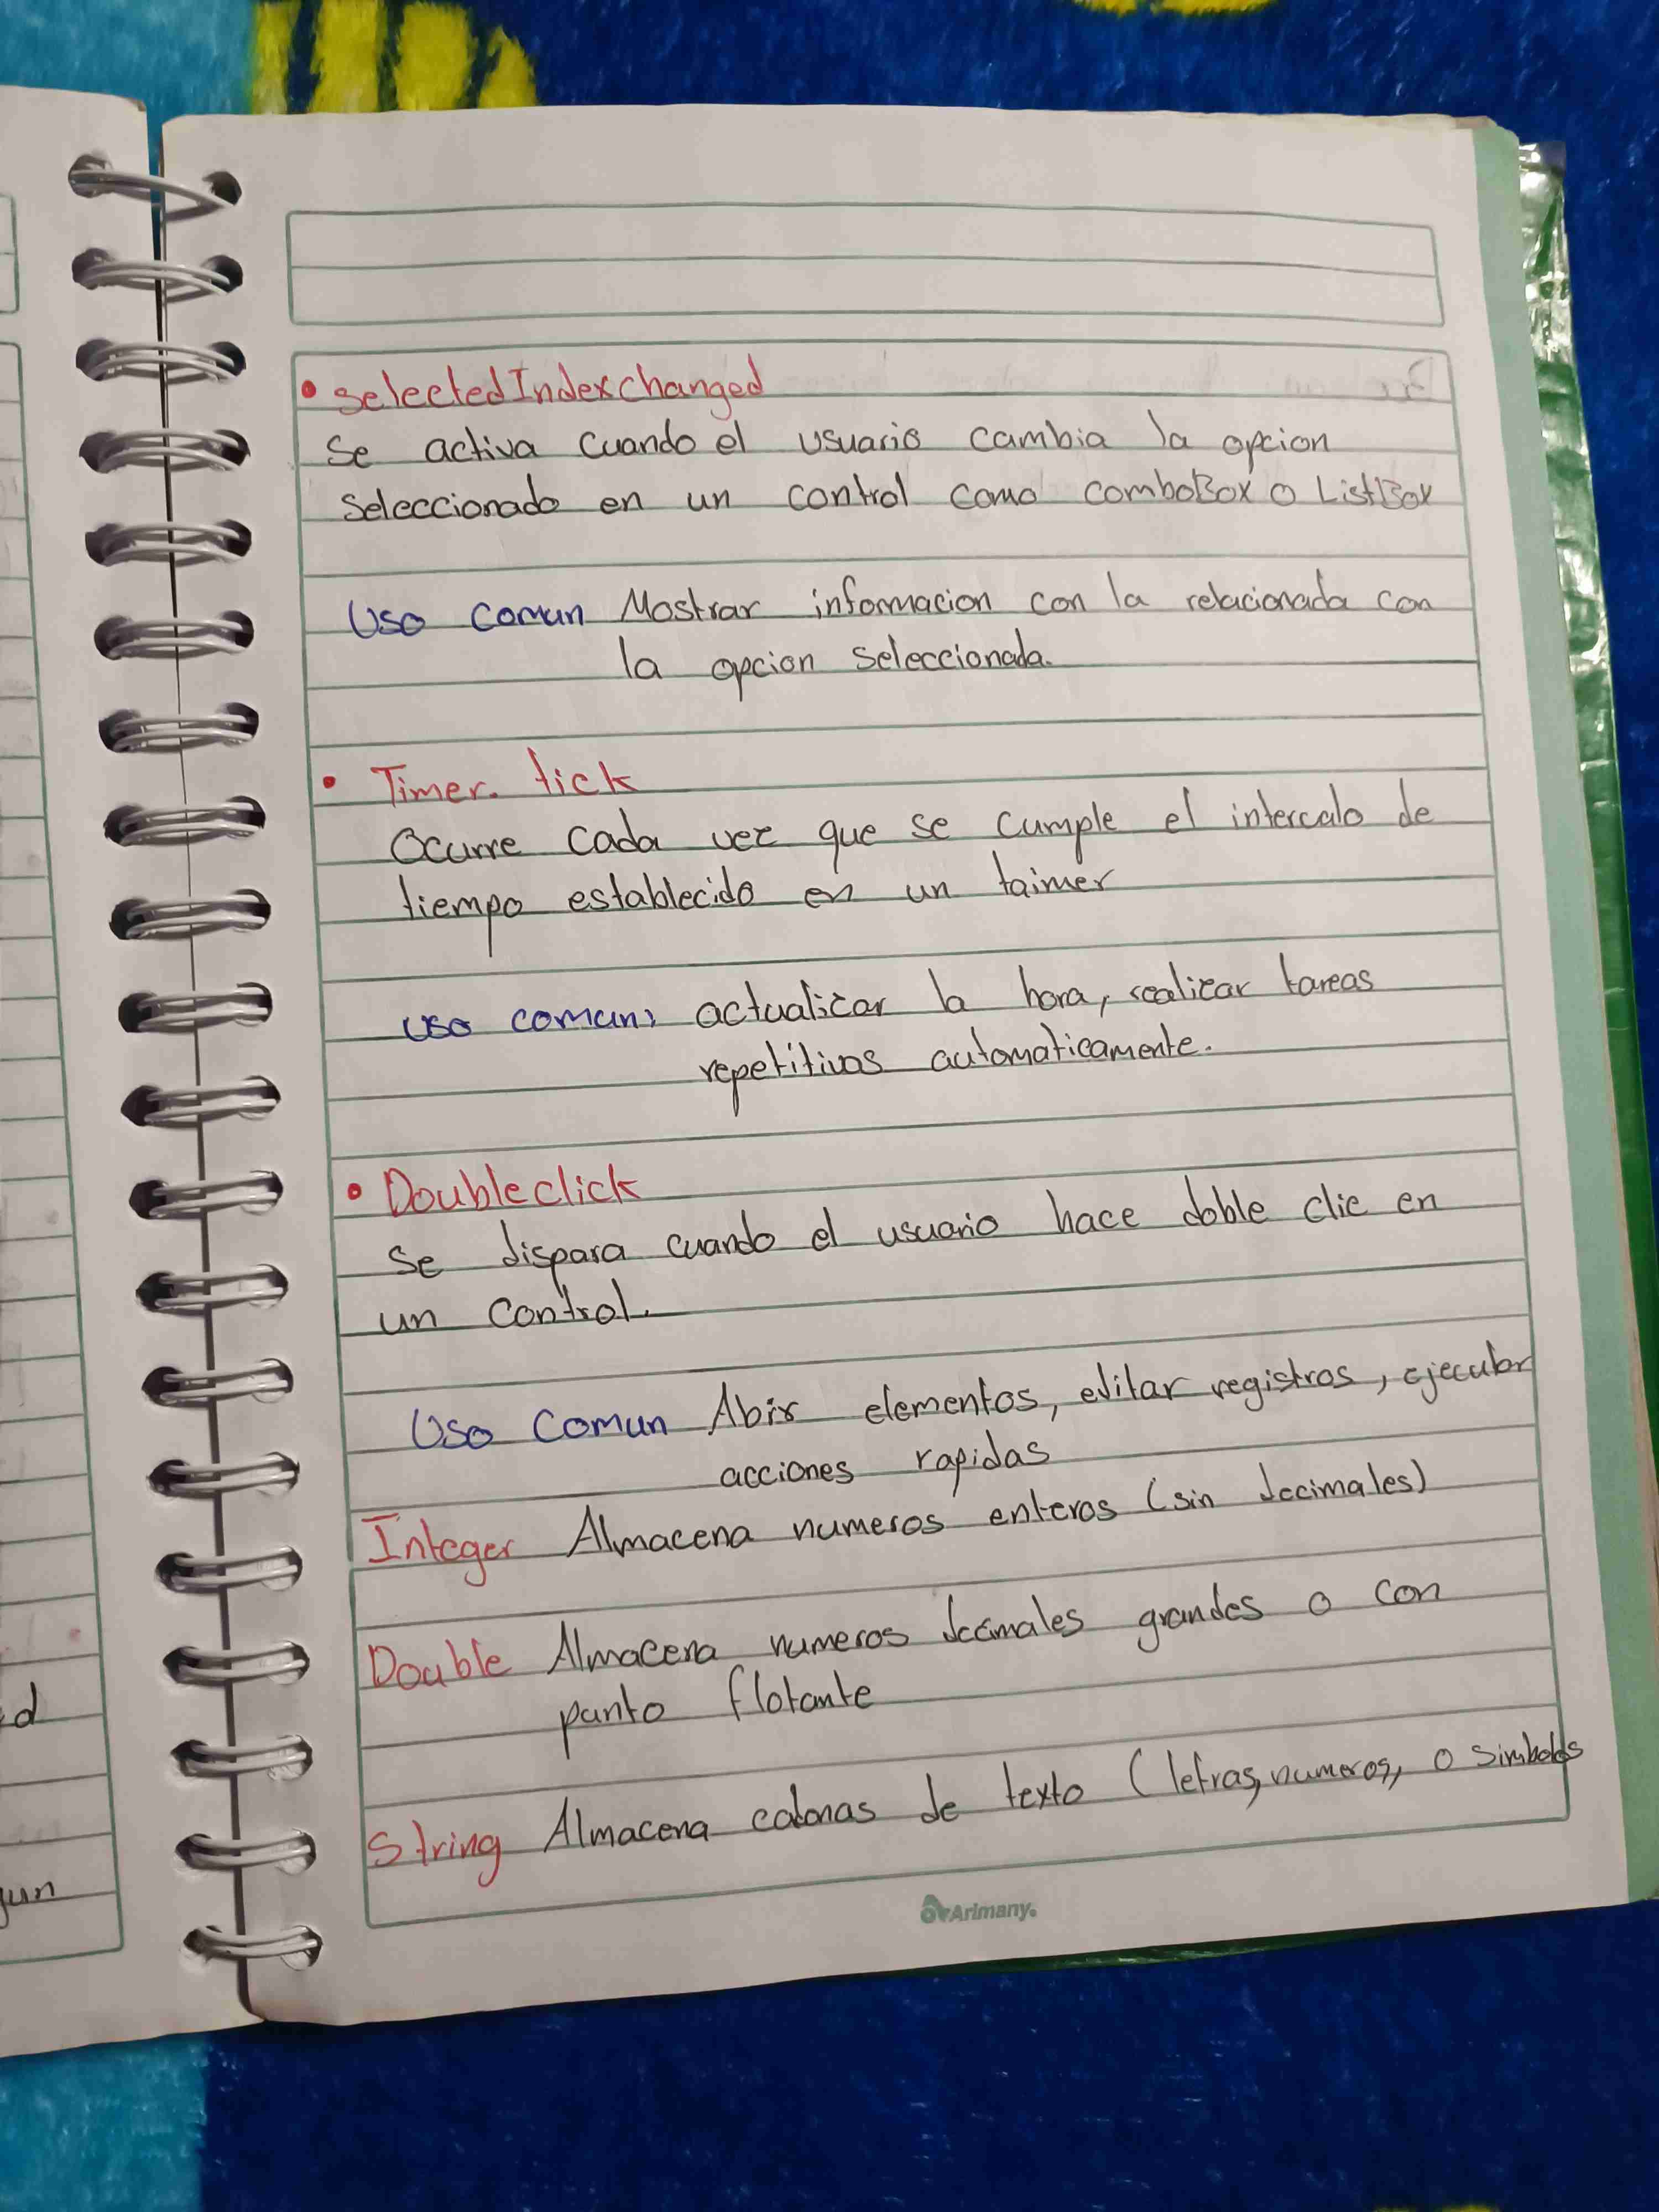 • SelectedIndexchanged
Se activa cuando el usuario cambia la opcion
Seleccionado en un control como comboBox o ListBox
Uso comun Mostrar informacion con la relacionada con
la opcion seleccionada.
• Timer. tick
Ocurre cada vez que se cumple el intercalo de
tiempo establecido en un taimer
uso comun: actualizar la hora, realizar tareas
repetitivas automaticamente.
• Doubleclick
se dispara cuando el usuario hace doble clic en
un control.
Uso comun Abir elementos, editar registros, ejecutar
acciones rapidas
Integer Almacena numeros enteros (sin decimales)
Double Almacena numeros decimales grandes o con
punto flotante
String Almacena cadenas de texto (letras, numeros, o simbolos
Arimany.
d
gun